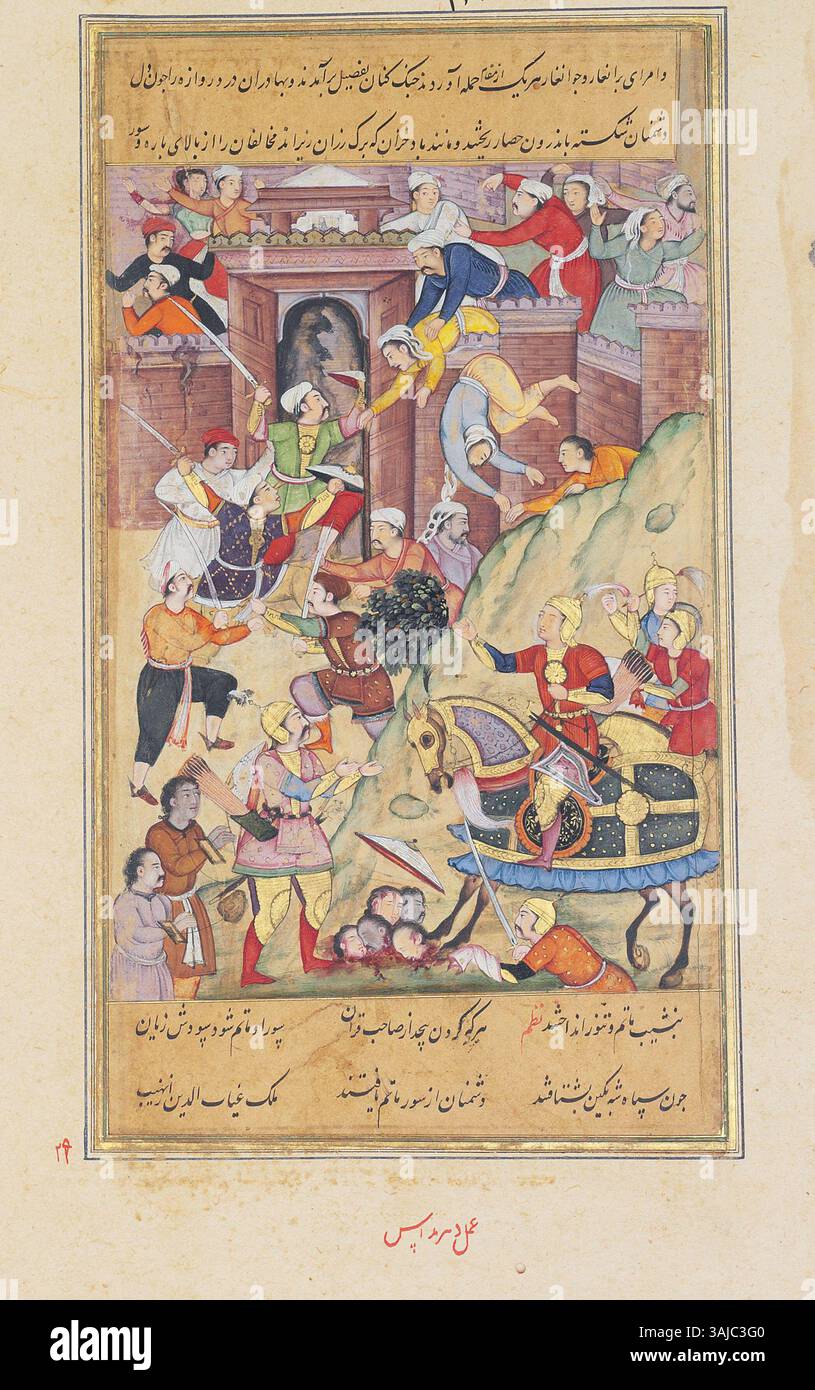 وامرای برانغار وجوانغار هریک از مقام حمله آوردند جنک کنان بفصیل برآمدند وبهادران در دروازه را چون دل
دشمنان شکسته باندرون حصار ریختند و مانند باد خزان که برک رزان ریزاند مخالفان را از بالای باره و سور
بنشیب ماتم و تنور انداختند نظم هر که کردن بپیچد از صاحب قران سور او ماتم شود سودش زیان
چون سپاه شه بکین بشتافتند دشمنان از سور ماتم یافتند ملک غیاث الدین از نهیب
۲۹
عمل دهرمداس
alamy
Image ID: 3AJC3G0
www.alamy.com